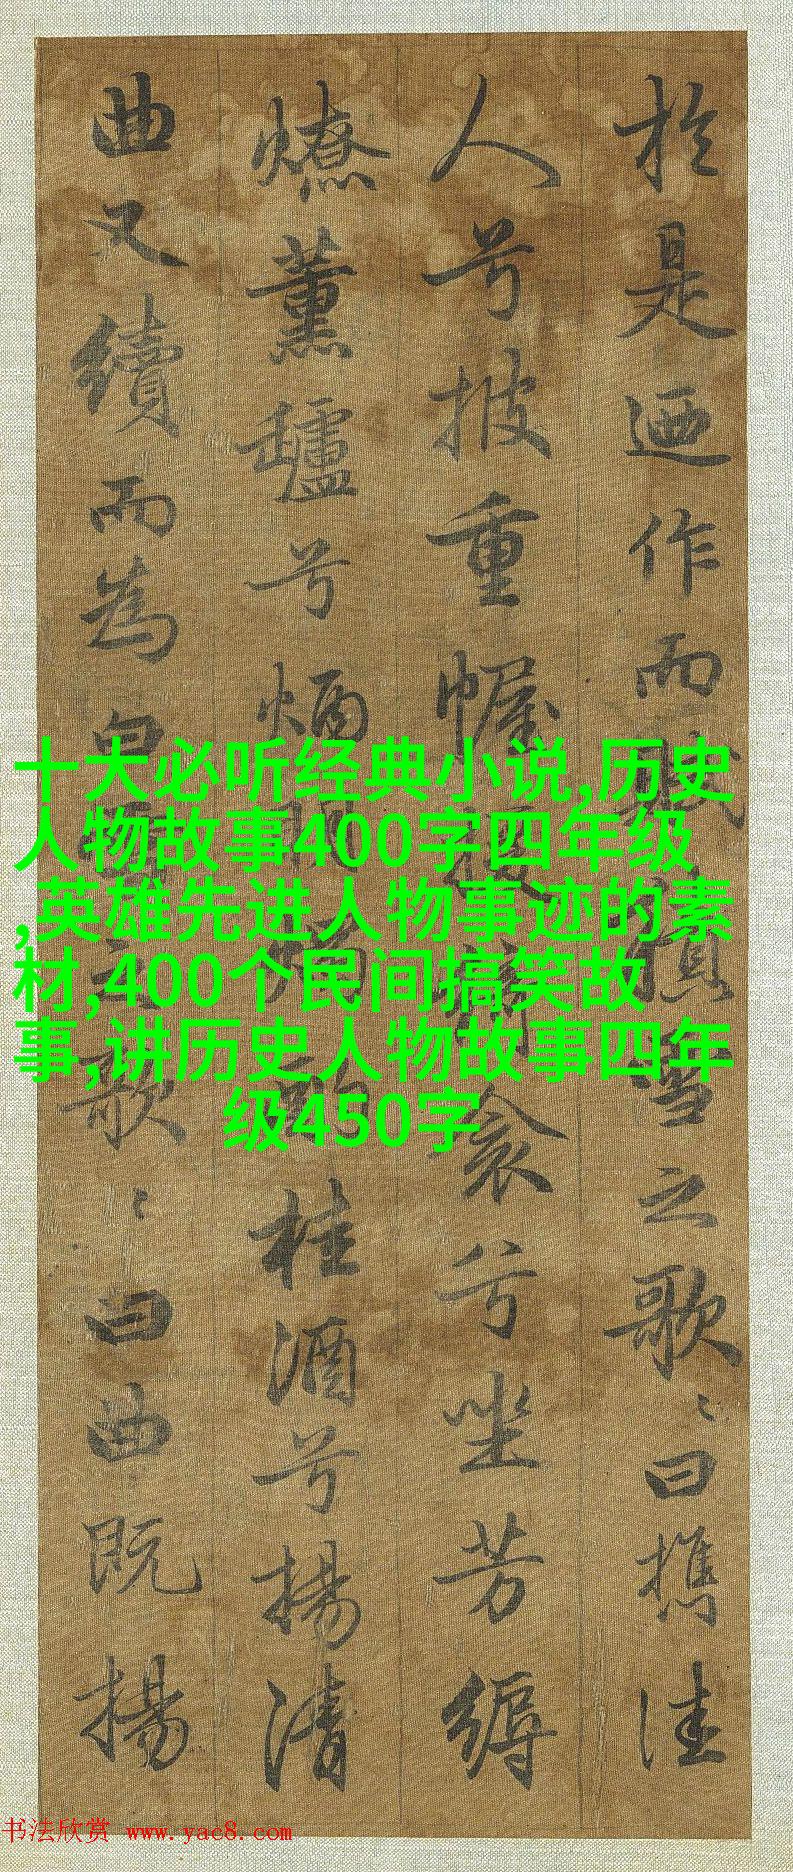 於是迺作而雪之歌〻曰攜佳
人兮披重幄衾兮坐芳縟
燎薰罏兮焫桂酒兮揚清
曲又續而為白歌〻曰曲既揚
十大必听经典小说,历史
人物故事400字四年级
,英雄先进人物事迹的素
材,400个民间搞笑故
事,讲历史人物故事四年
级450字
书法欣赏 www.yac8.com